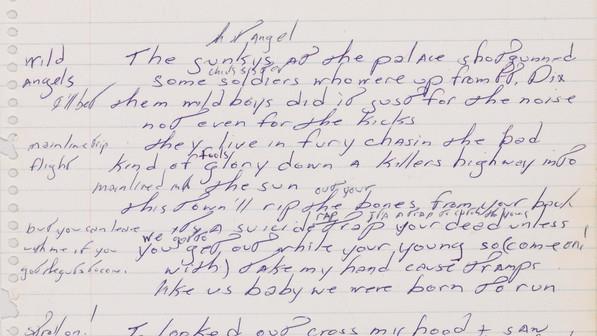 hot Angel
Wild The gunkys at the palace shotgunned
chick sister
Angels some soldiers who were up from Ft. Dix
I'll bet them wild boys did it just for the noise
not even for the kicks
mainline trip they live in fury chasin the bad
fools
flight kind of glory down a killers highway into
mainlined the sun out your
this town'll rip the bones from your back
RAP It's a trap to catch the young
but you can leave its a suicide trap your dead unless
we gotta
with me if you you get out while your young so (come on!
with) take my hand cause tramps
like us baby we were born to run
I looked out cross my hood + saw